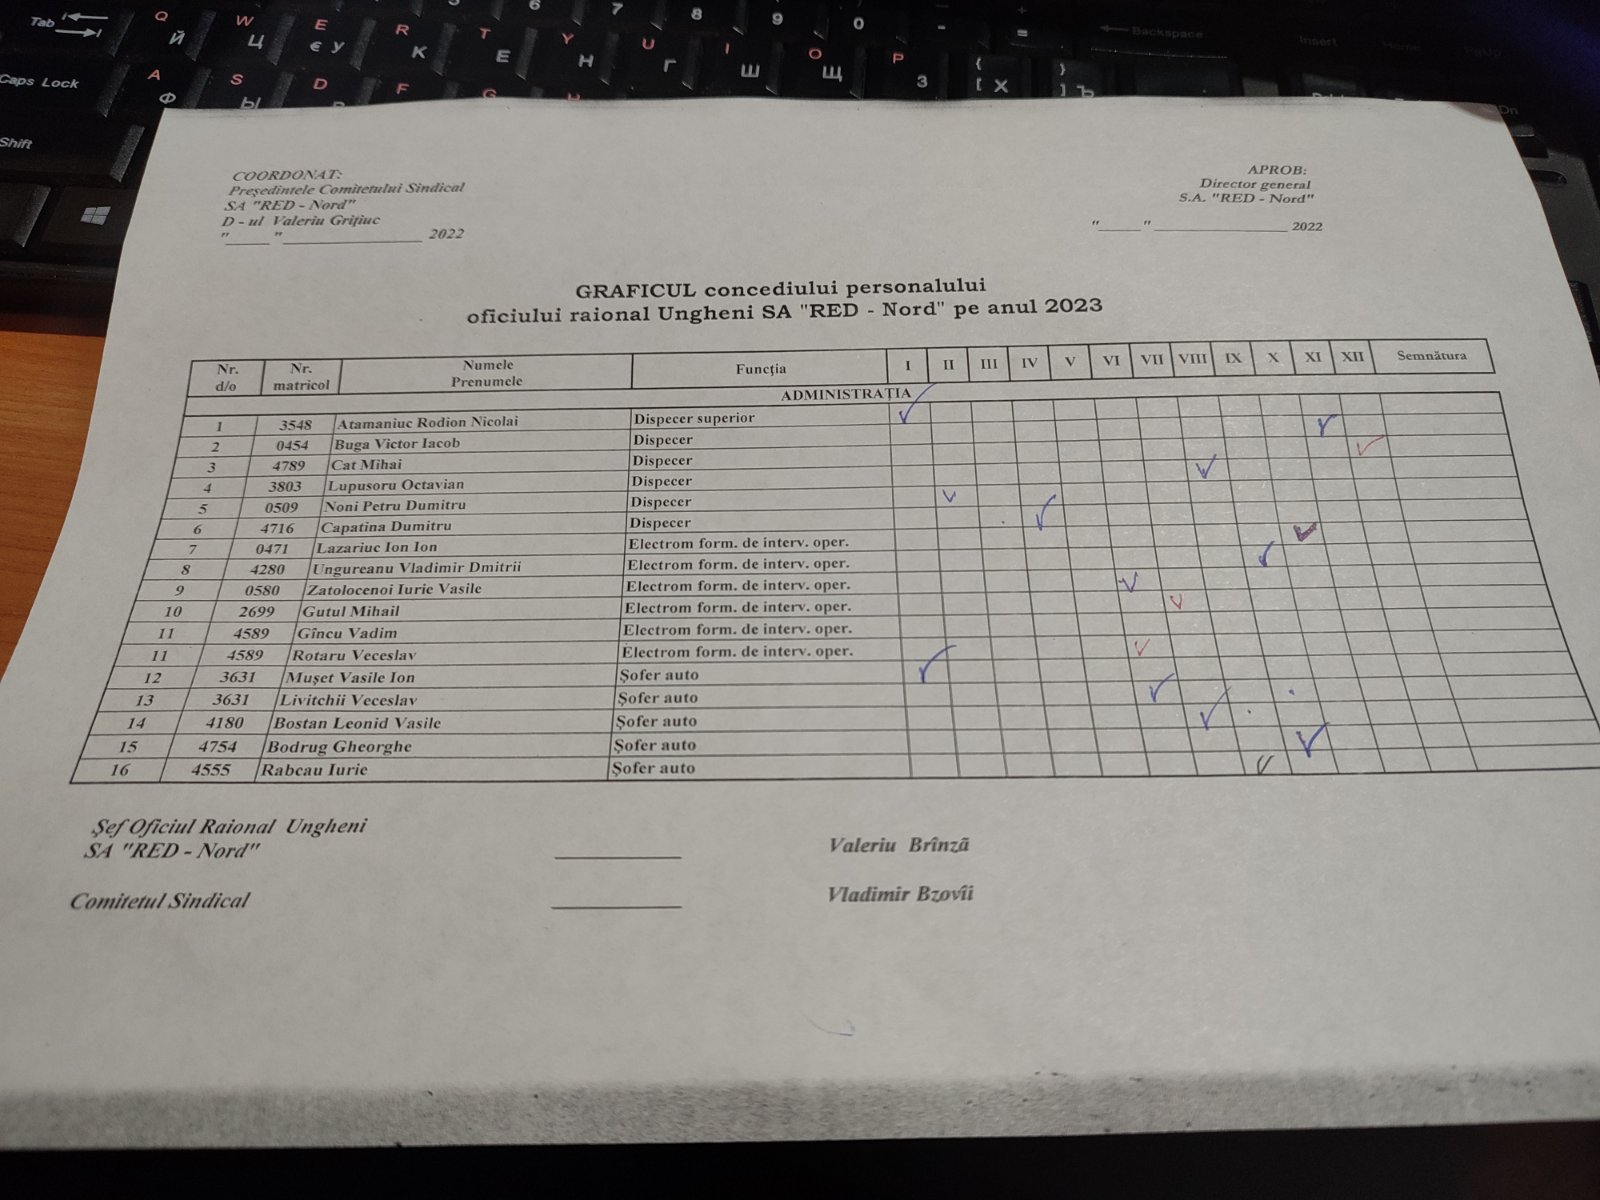 Tab Q Й W Ц E € У R К T Е Y Н U Г I Ш O Щ P З { [ Х } ] Ъ
6 7 8 9 0 - = Backspace Insert Home PgUp
Caps Lock A Ф S Ы D F G
Shift
COORDONAT:
Preşedintele Comitetului Sindical
SA "RED - Nord"
D - ul Valeriu Griţiuc
"_____ "________________ 2022
APROB:
Director general
S.A. "RED - Nord"
"_____" ________________ 2022
GRAFICUL concediului personalului
oficiului raional Ungheni SA "RED - Nord" pe anul 2023
Nr. d/o Nr. matricol Numele Prenumele Funcţia I II III IV V VI VII VIII IX X XI XII Semnătura
ADMINISTRAŢIA
1 3548 Atamaniuc Rodion Nicolai Dispecer superior
2 0454 Buga Victor Iacob Dispecer
3 4789 Cat Mihai Dispecer
4 3803 Lupusoru Octavian Dispecer
5 0509 Noni Petru Dumitru Dispecer
6 4716 Capatina Dumitru Dispecer
7 0471 Lazariuc Ion Ion Electrom form. de interv. oper.
8 4280 Ungureanu Vladimir Dmitrii Electrom form. de interv. oper.
9 0580 Zatolocenoi Iurie Vasile Electrom form. de interv. oper.
10 2699 Gutul Mihail Electrom form. de interv. oper.
11 4589 Gîncu Vadim Electrom form. de interv. oper.
11 4589 Rotaru Veceslav Electrom form. de interv. oper.
12 3631 Muşet Vasile Ion Şofer auto
13 3631 Livitchii Veceslav Şofer auto
14 4180 Bostan Leonid Vasile Şofer auto
15 4754 Bodrug Gheorghe Şofer auto
16 4555 Rabcau Iurie Şofer auto
Şef Oficiul Raional Ungheni
SA "RED - Nord" ____________ Valeriu Brînzã
Comitetul Sindical ____________ Vladimir Bzovîi